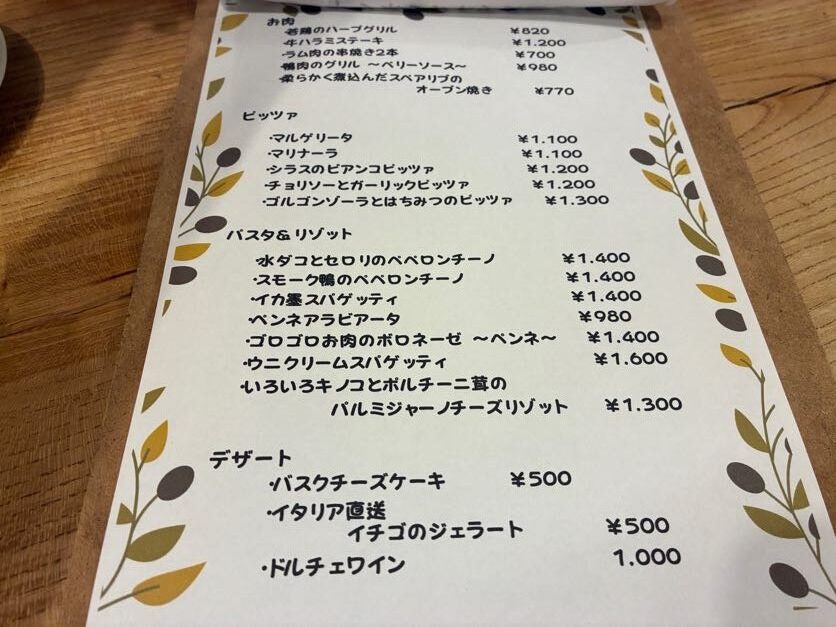 お肉
・若鶏のハーブグリル ¥820
・牛ハラミステーキ ¥1.200
・ラム肉の串焼き2本 ¥700
・鴨肉のグリル 〜ベリーソース〜 ¥980
・柔らかく煮込んだスペアリブの
オーブン焼き ¥770
ピッツァ
・マルゲリータ ¥1.100
・マリナーラ ¥1.100
・シラスのビアンコピッツァ ¥1.200
・チョリソーとガーリックピッツァ ¥1.200
・ゴルゴンゾーラとはちみつのピッツァ ¥1.300
パスタ&リゾット
・水ダコとセロリのペペロンチーノ ¥1.400
・スモーク鴨のペペロンチーノ ¥1.400
・イカ墨スパゲッティ ¥1.400
・ペンネアラビアータ ¥980
・ゴロゴロお肉のボロネーゼ 〜ペンネ〜 ¥1.400
・ウニクリームスパゲッティ ¥1.600
・いろいろキノコとポルチーニ茸の
パルミジャーノチーズリゾット ¥1.300
デザート
・バスクチーズケーキ ¥500
・イタリア直送
イチゴのジェラート ¥500
・ドルチェワイン 1.000